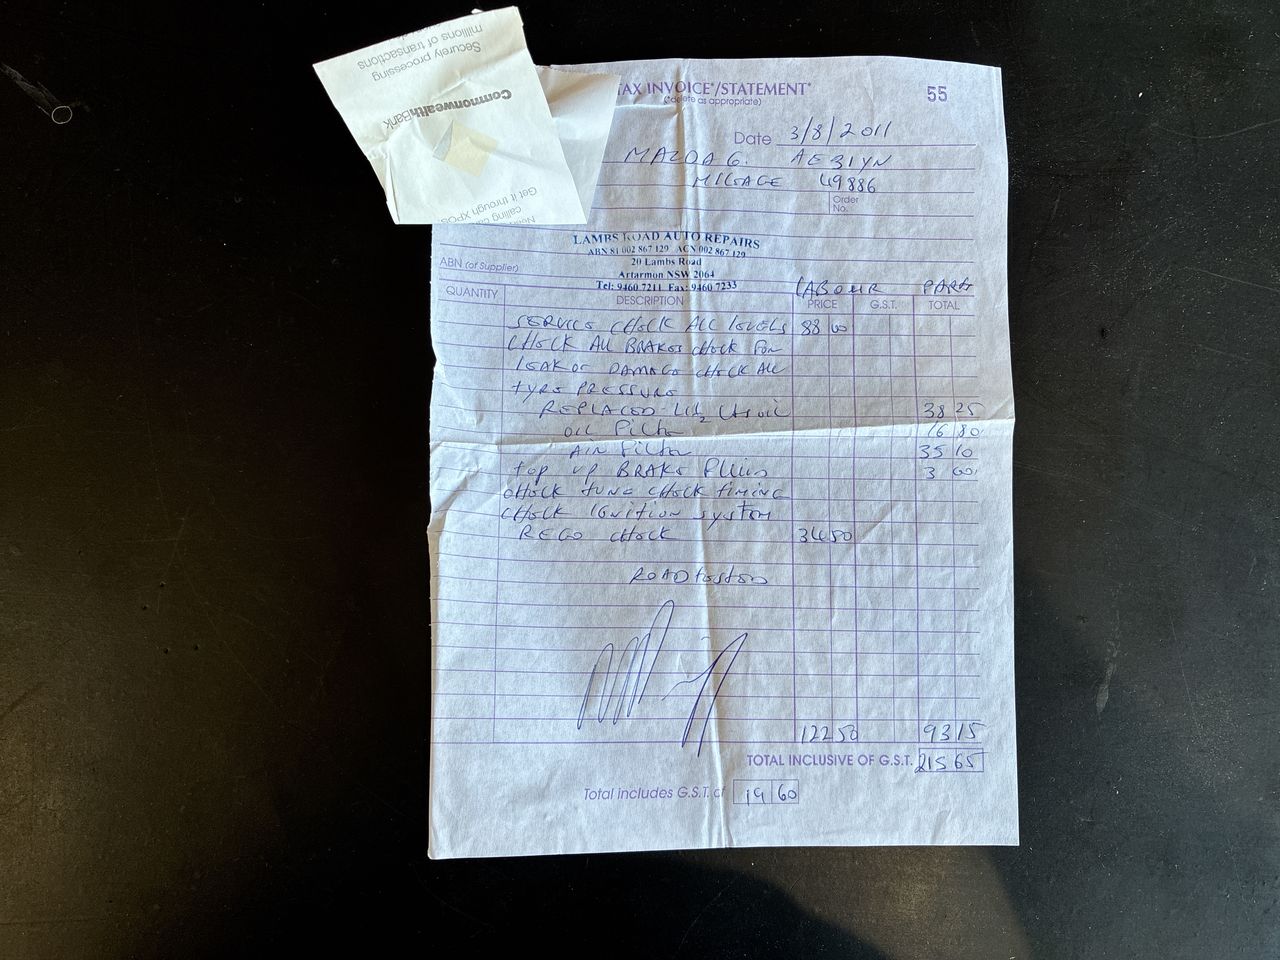 Securely processing
millions of transactions
CommonwealthBank
Get it through XPOS
calling
TAX INVOICE*/STATEMENT*
(*delete as appropriate)
55
Date 3/8/2011
MAZDA 6. AE31YN
MILEAGE 49886
Order
No.
LAMBS ROAD AUTO REPAIRS
ABN 81 002 867 129 ACN 002 867 129
20 Lambs Road
Artarmon NSW 2064
Tel: 9460 7211 Fax: 9460 7233
ABN (of Supplier)
LABOUR PARTS
QUANTITY DESCRIPTION PRICE G.S.T. TOTAL
SERVICE CHECK ALL LEVELS 88 00
CHECK ALL BRAKES CHECK FOR
LEAK OR DAMAGE CHECK ALL
TYRE PRESSURE
REPLACED 4 1/2 LTS OIL 38 25
OIL FILTER 16 80
AIR FILTER 35 10
TOP UP BRAKE FLUID 3 00
CHECK TUNE CHECK TIMING
CHECK IGNITION SYSTEM
REGO CHECK 34 50
ROAD TESTED
122 50 93 15
TOTAL INCLUSIVE OF G.S.T. 215 65
Total includes G.S.T. of 19 60